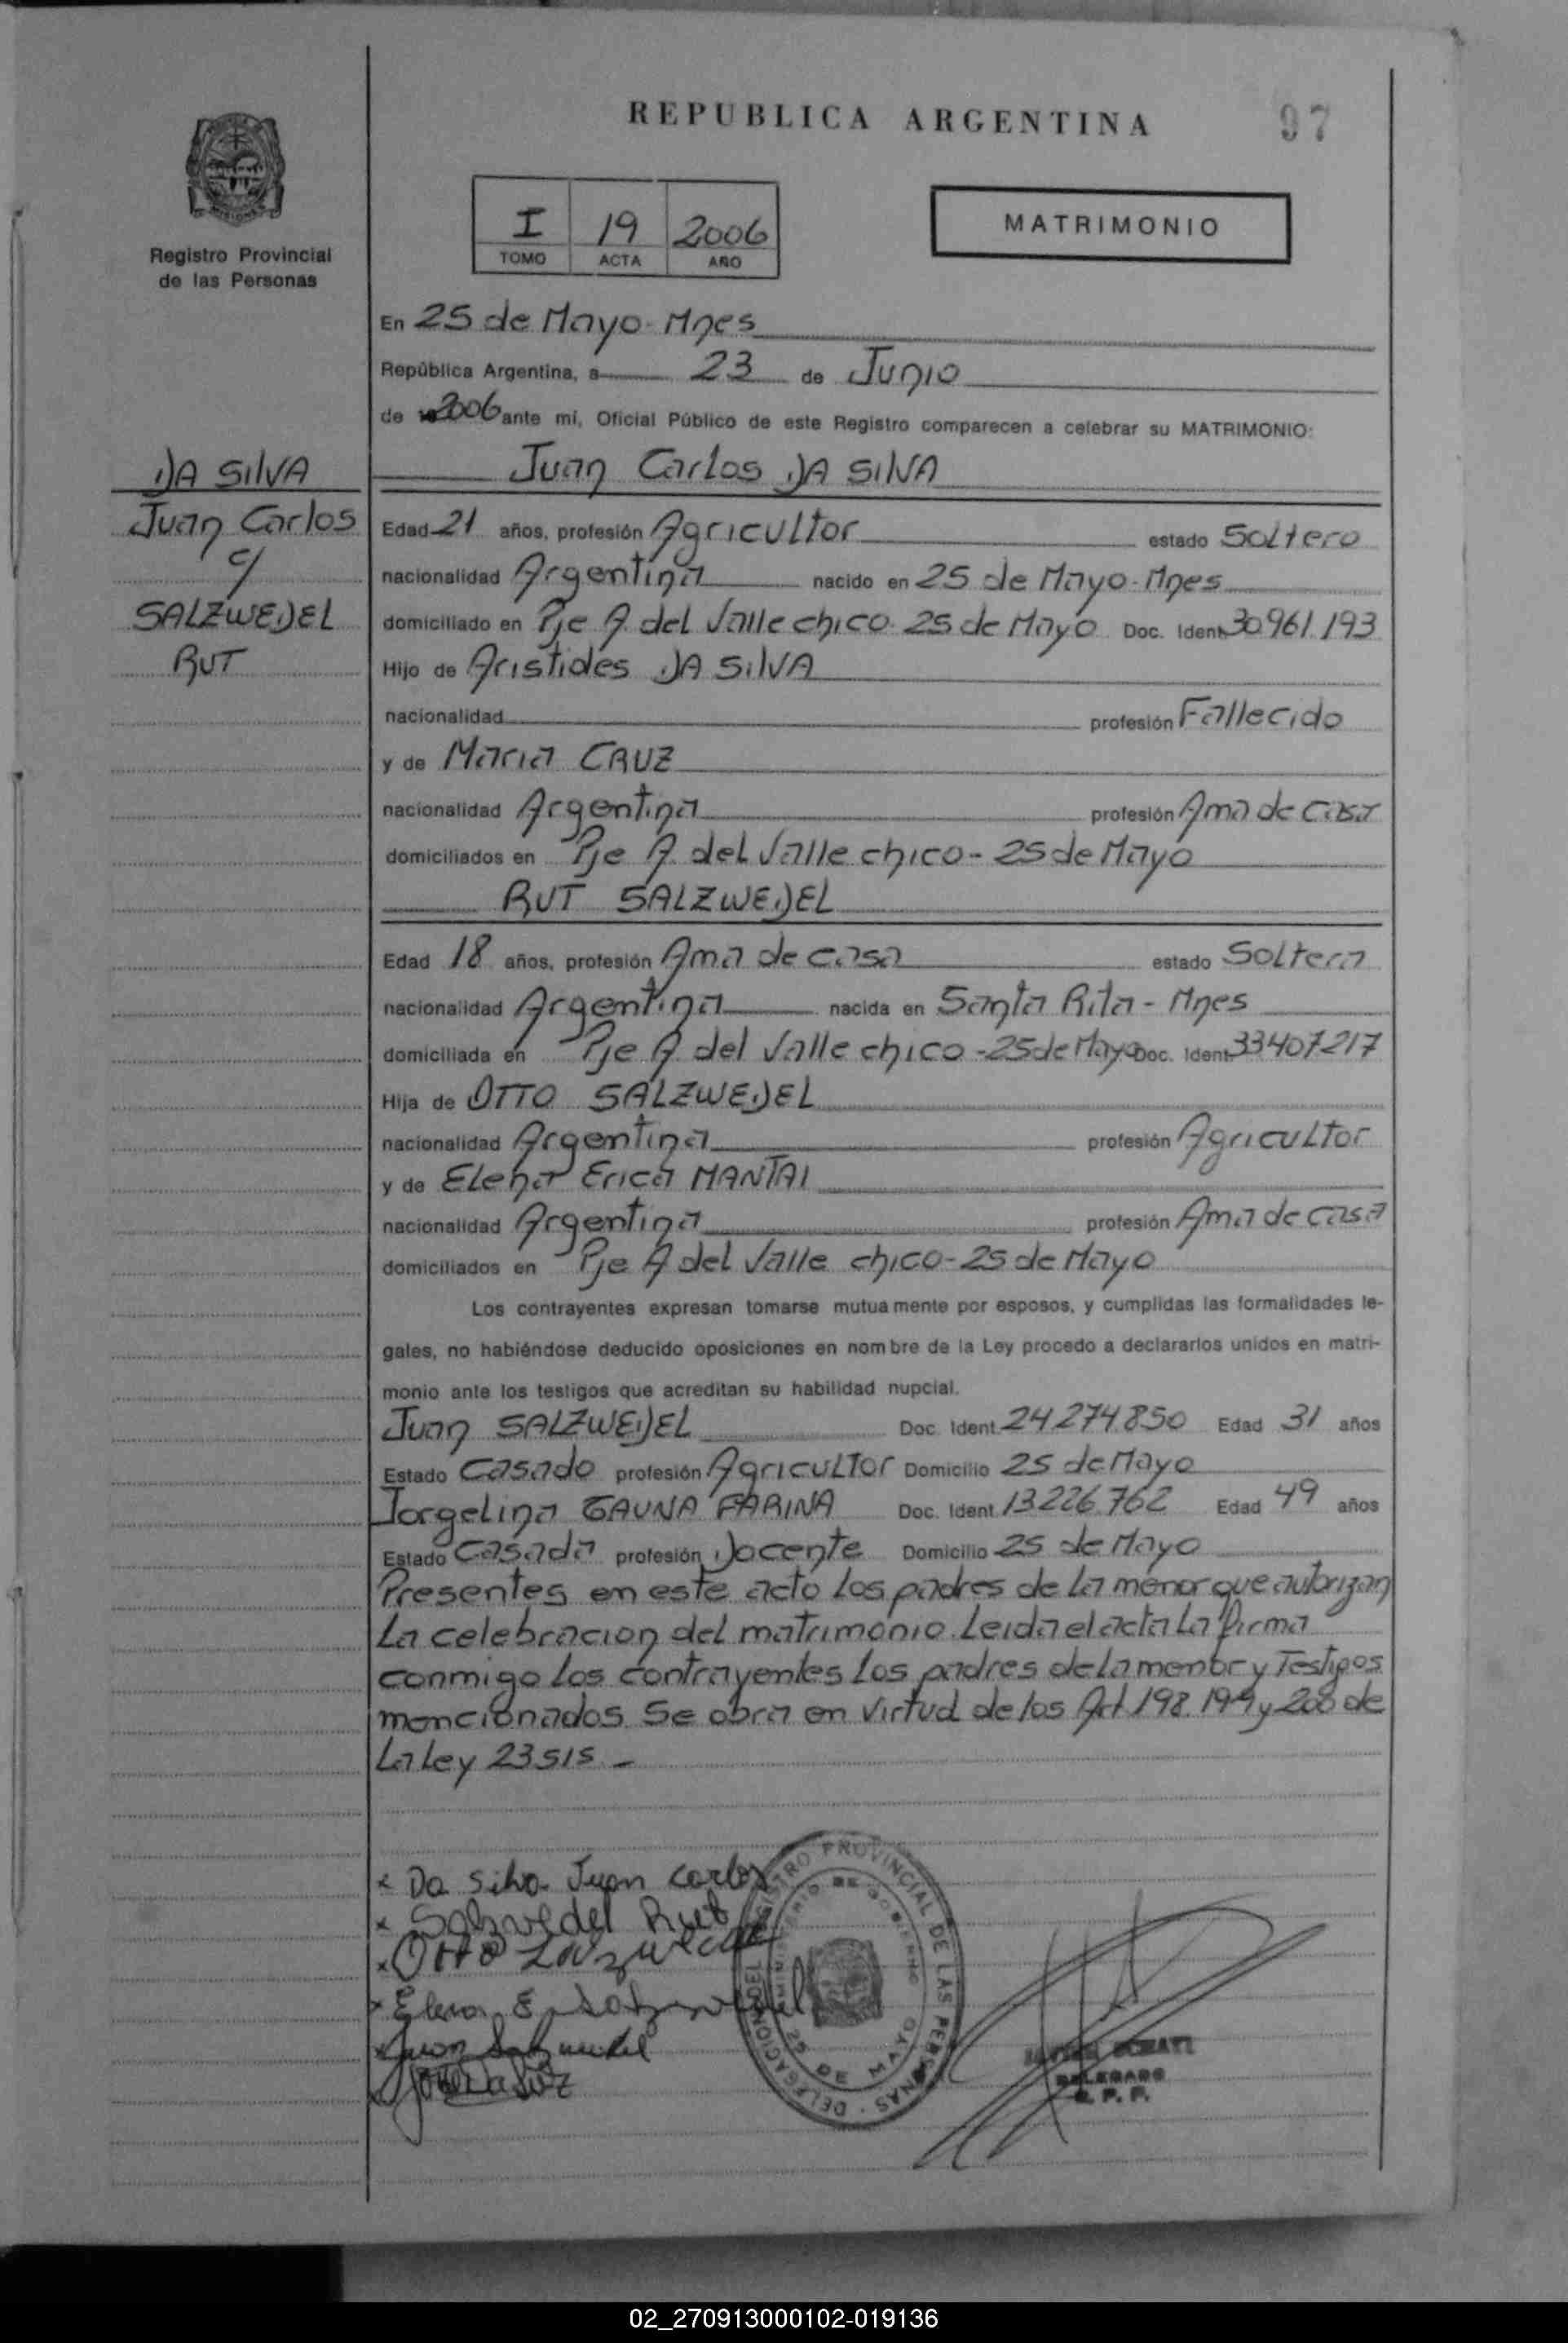 REPUBLICA ARGENTINA
97
Registro Provincial
de las Personas
I 19 2006
TOMO ACTA AÑO
MATRIMONIO
En 25 de Mayo-Mnes
República Argentina, a 23 de Junio
de 2006 ante mí, Oficial Público de este Registro comparecen a celebrar su MATRIMONIO:
DA SILVA
Juan Carlos
c/
SALZWEDEL
RUT
Juan Carlos DA SILVA
Edad 21 años, profesión Agricultor estado Soltero
nacionalidad Argentina nacido en 25 de Mayo-Mnes
domiciliado en Pje A. del Valle chico-25 de Mayo Doc. Ident. 30961.193
Hijo de Aristides DA SILVA
nacionalidad profesión Fallecido
y de Maria CRUZ
nacionalidad Argentina profesión Ama de casa
domiciliados en Pje A. del Valle chico-25 de Mayo
RUT SALZWEDEL
Edad 18 años, profesión Ama de casa estado Soltera
nacionalidad Argentina nacida en Santa Rita-Mnes
domiciliada en Pje A. del Valle chico-25 de Mayo Doc. Ident. 33.407.217
Hija de OTTO SALZWEDEL
nacionalidad Argentina profesión Agricultor
y de Elena Erica MANTAI
nacionalidad Argentina profesión Ama de casa
domiciliados en Pje A del Valle chico-25 de Mayo
Los contrayentes expresan tomarse mutuamente por esposos, y cumplidas las formalidades le-
gales, no habiéndose deducido oposiciones en nombre de la Ley procedo a declararlos unidos en matri-
monio ante los testigos que acreditan su habilidad nupcial.
Juan SALZWEDEL Doc. Ident. 24.274.850 Edad 31 años
Estado Casado profesión Agricultor Domicilio 25 de Mayo
Jorgelina GAUNA FARINA Doc. Ident. 13.226.762 Edad 49 años
Estado Casada profesión Docente Domicilio 25 de Mayo
Presentes en este acto los padres de la menor que autorizan
La celebracion del matrimonio. Leida el acta La firma
conmigo los contrayentes los padres de la menor y Testigos
mencionados. Se obra en Virtud de los Art 198. 199 y 200 de
La Ley 23515 -
x Da Silva Juan Carlos
x Salzwedel Rut
x Otto
x Elena E. Salzwedel
x Juan Salzwedel
DELEGACION DEL REGISTRO PROVINCIAL DE LAS PERSONAS
MINISTERIO DE GOBIERNO
25 DE MAYO
DELEGADO
R. P. P.
02_270913000102-019136